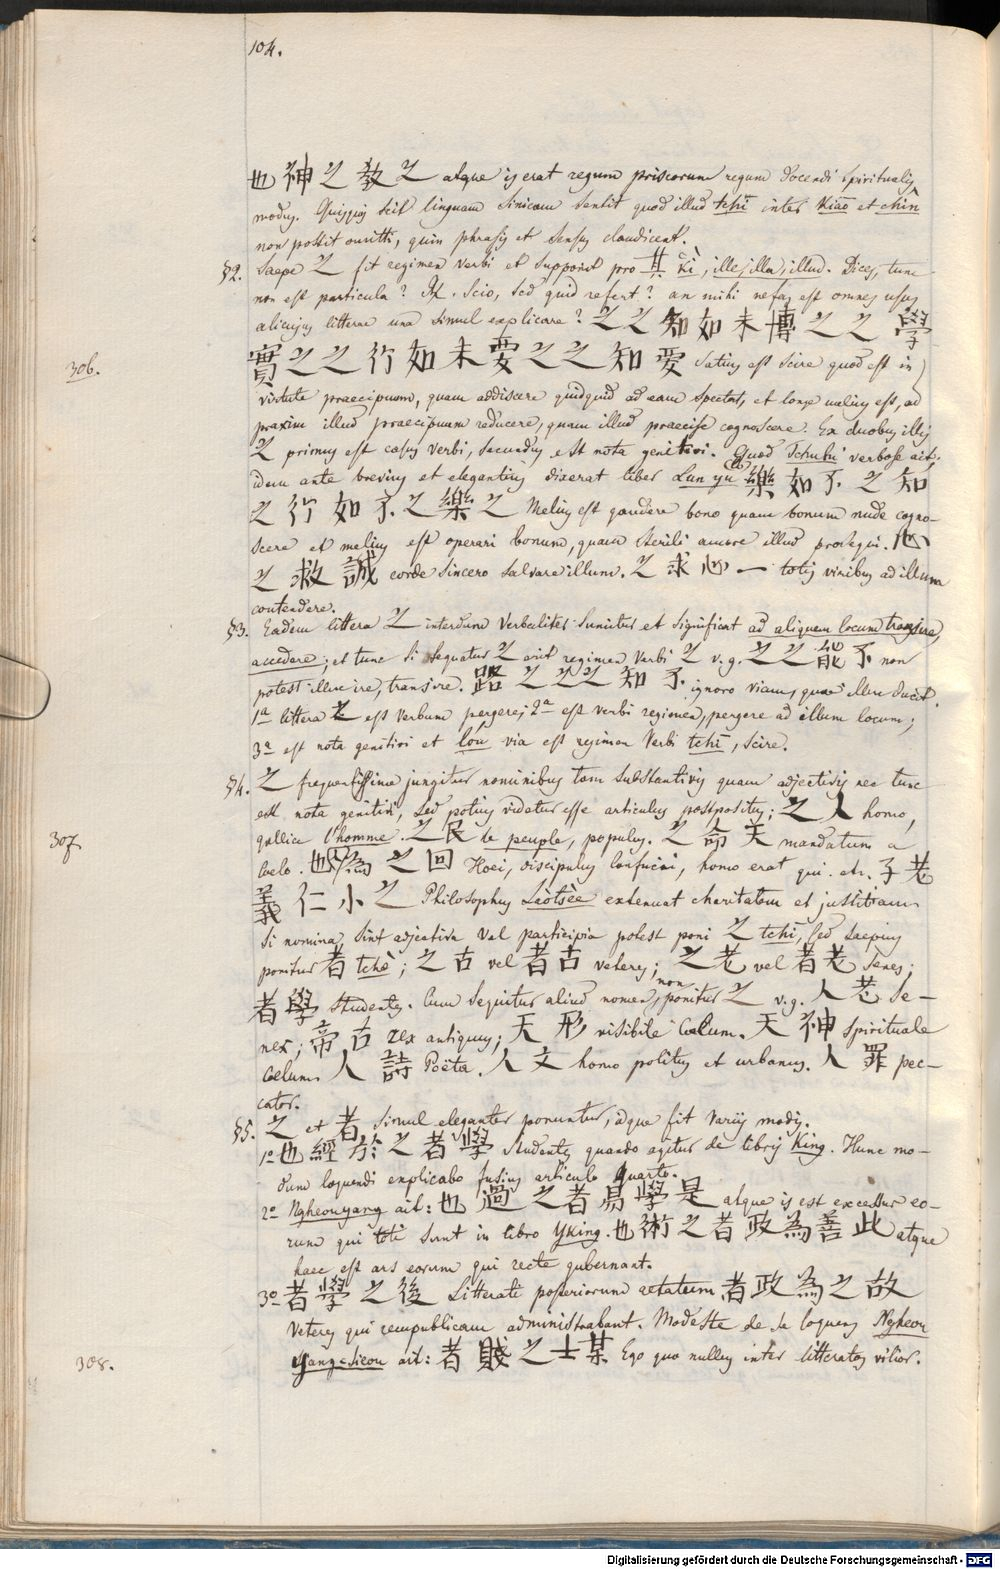 104.
也神之教之 atque is erat regum priscorum regum docendi spiritualis
modus. Quisquis scit linguam Sinicam sentit quod illud tchī inter Kiāo et chîn
non possit omitti, quin phrasis et sensus claudicent.
§2. Saepe 之 fit regimen verbi et supponit pro 其 kî, ille, illa, illud. Dices, tunc
non est particula? R. Scio, sed quid refert? an mihi nefas est omnes usus
alicujus litterae una simul explicare? 之之知如未博之之學
306.
實之之行如未要之之知愛 satius est scire quod est in
virtute praecipuum, quam addiscere quidquid ad eam spectat, et longe melius est, ad
praxim illud praecipuum reducere, quam illud praecise cognoscere. Ex duobus illis
之 primus est casus verbi, secundus est nota genitivi. Quod Tchuhi verbose ait,
idem ante brevius et elegantius dixerat liber Lun yu 樂如不之知
之行如不之樂之 Melius est gaudere bono quam bonum nude cogno-
scere et melius est operari bonum, quam sterili amore illud prosequi. 心
之救誠 corde sincero salvare illum. 之求心一 totis viribus ad illum
contendere.
§3. Eadem littera 之 interdum verbaliter sumitur et significat ad aliquem locum transire,
accedere; et tunc si sequatur 之 erit regimen verbi 之 v.g. 之之能不 non
potest illuc ire, transire. 路之之之知不 ignoro viam, quae illuc ducit.
1a littera 之 est verbum pergere; 2a est verbi regimen, pergere ad illum locum;
3a est nota genitivi et lóu via est regimen verbi tchī, scire.
§4. 之 frequentissime jungitur nominibus tam substantivis quam adjectivis nec tunc
est nota genitivi, sed potius videtur esse articulus postpositus; 之人 homo,
307
gallice l'homme. 之民 le peuple, populus. 之命天 mandatum a
Coelo. 也為之回 Hoei, discipulus Confucii, homo erat qui. etc. 子老
義仁小之 Philosophus Laòtsèe extenuat charitatem et justitiam
Si nomina sint adjectiva vel participia potest poni 之 tchī, sed saepius
ponitur 者 tchè; 之古 vel 者古 veteres; 之老 vel 者老 senes;
者學 studentes. Cum sequitur aliud nomen, non ponitur 之 v.g. 人老 se-
nex; 帝古 rex antiquus; 天形 visibile Coelum. 天神 spirituale
Coelum. 人詩 Poëta. 人文 homo politus et urbanus. 人罪 pec-
cator.
§5. 之 et 者 simul eleganter ponuntur, idque fit variis modis.
1o 也經於之者學 Studentes quando agitur de libris King. Hunc mo-
dum loquendi explicabo fusius articulo quarto.
2o Ngheouyang ait: 也過之者易學是 atque is est excessus eo-
rum qui toti sunt in libro Yking. 也術之者政為善此 atque
haec est ars eorum qui recte gubernant.
3o 者學之後 Litterati posteriorum aetatum 者政為之故
Veteres qui rempublicam administrabant. Modeste de se loquens Ngheou
308.
yang-sieou ait: 者賤之士某 Ego quo nullus inter litteratos vilior.
Digitalisierung gefördert durch die Deutsche Forschungsgemeinschaft - DFG